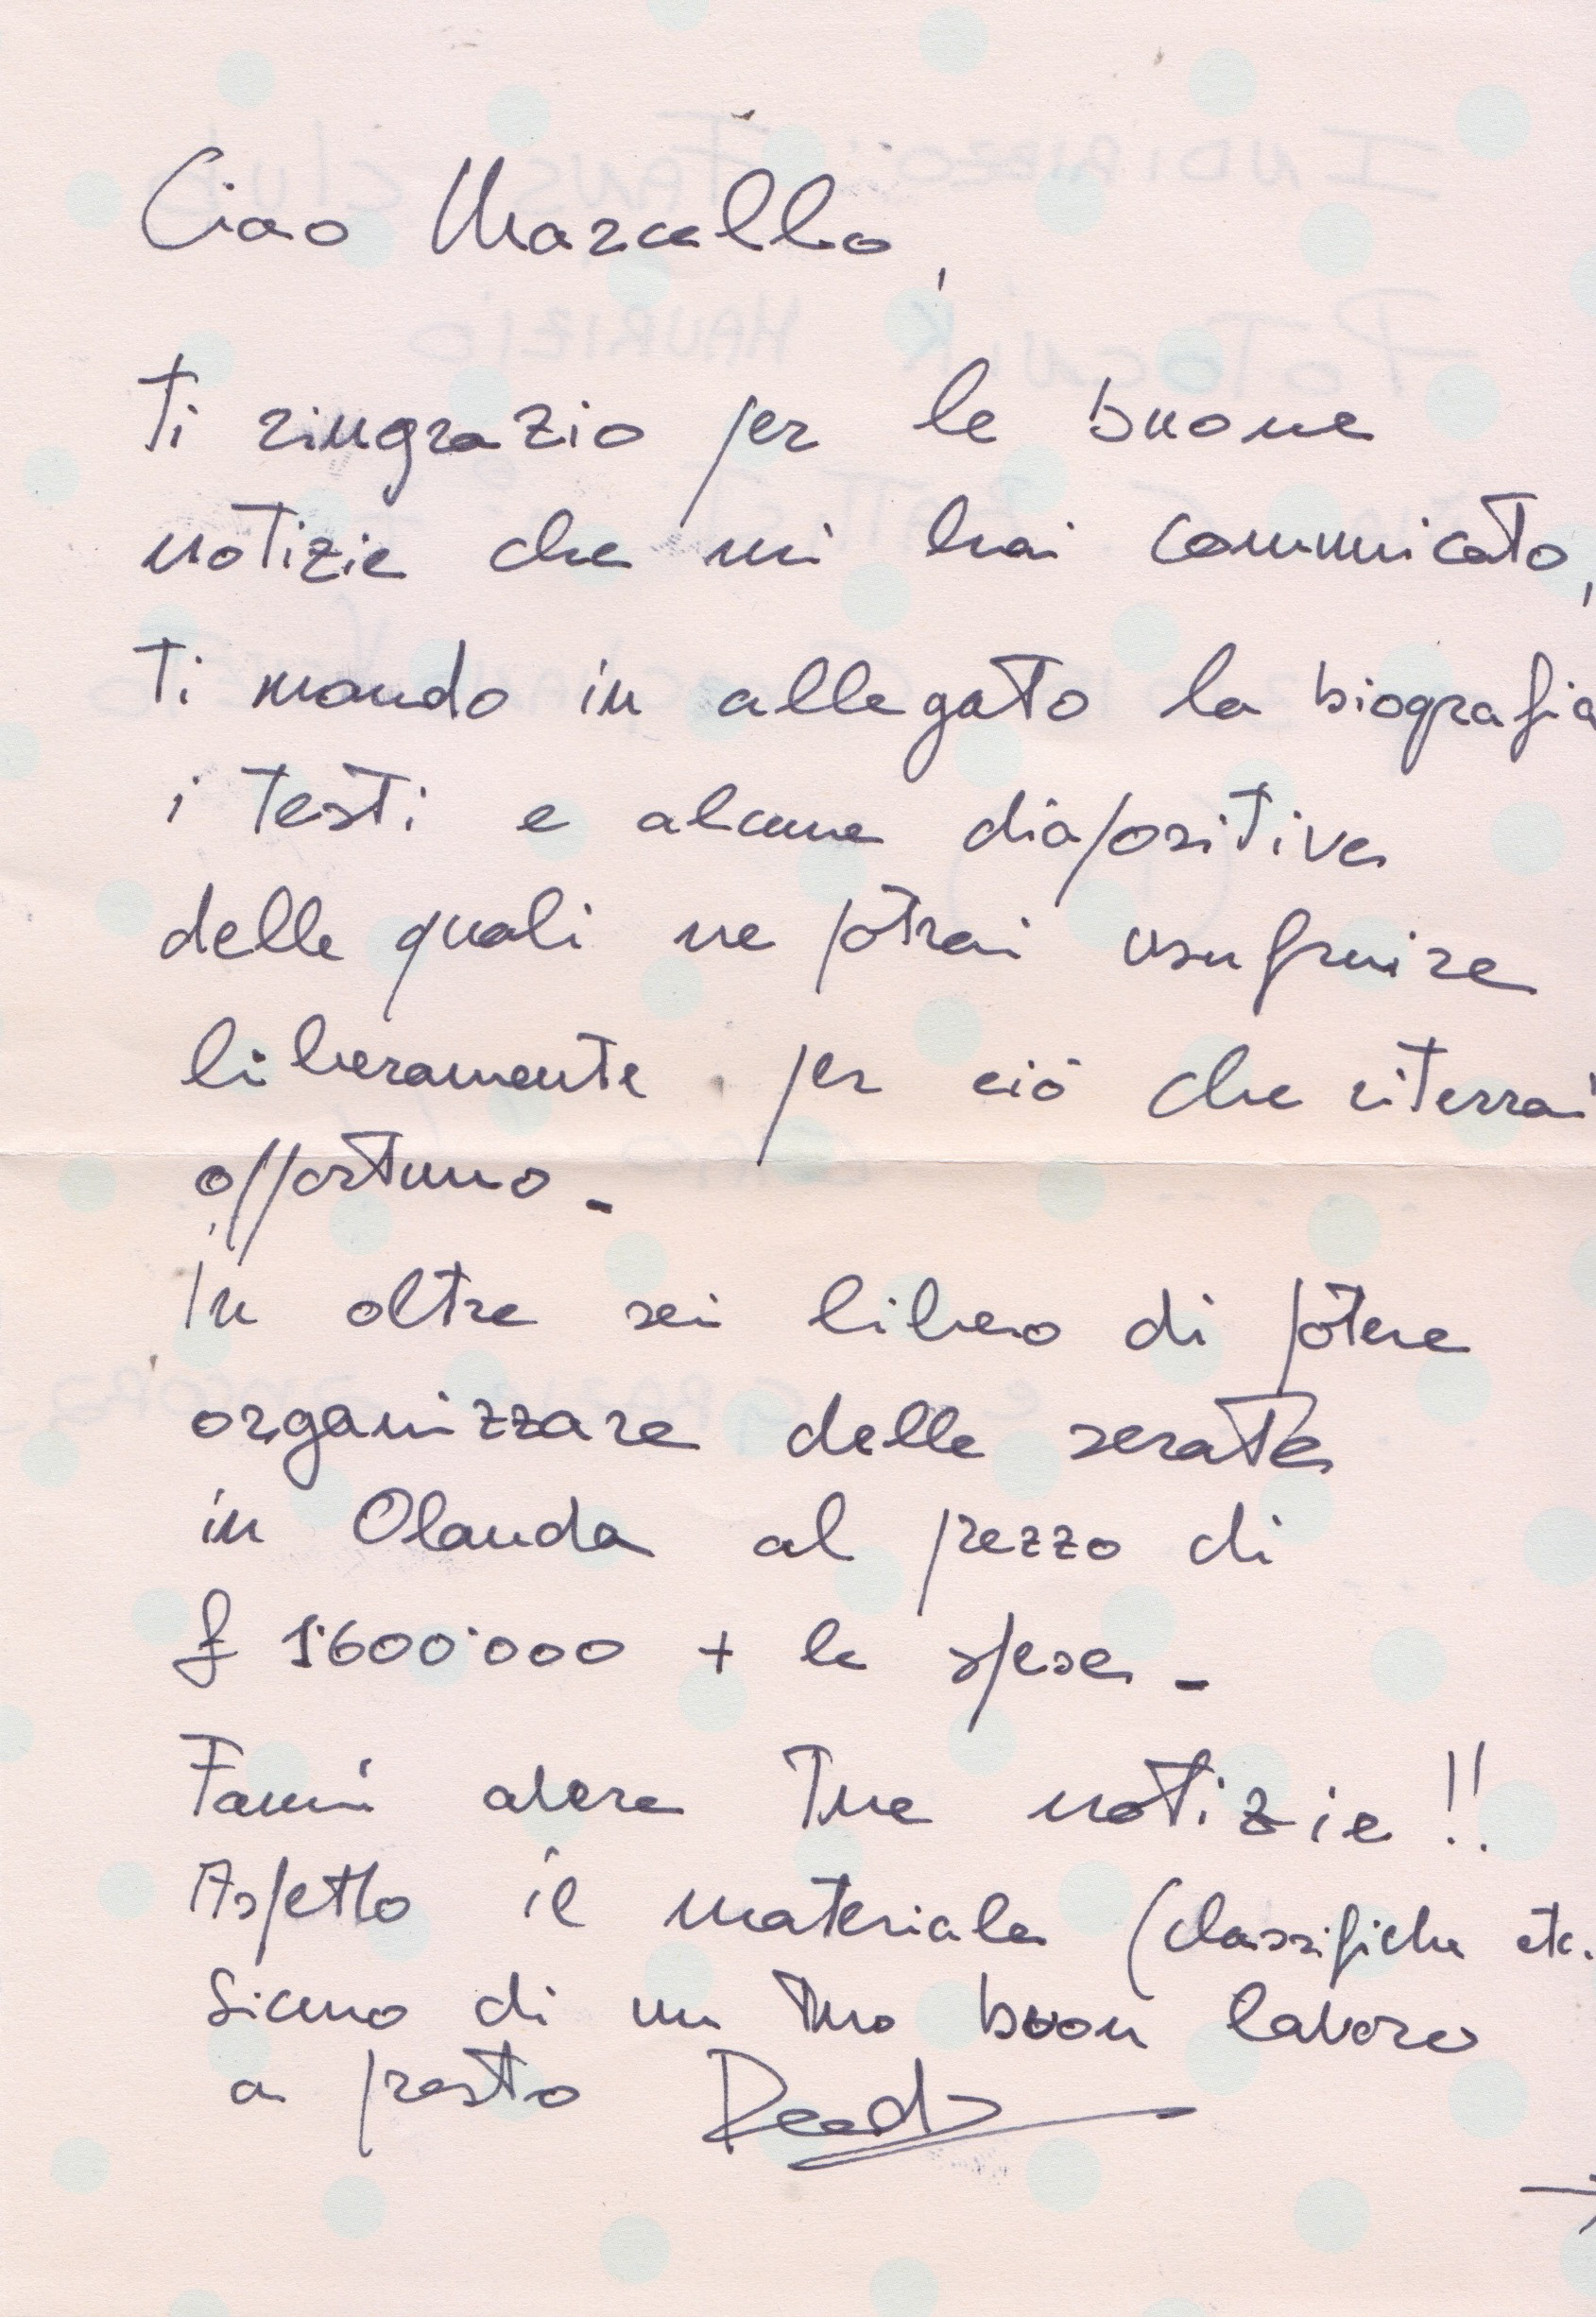 Ciao Marcello,
Ti ringrazio per le buone
notizie che mi hai communicato,
Ti mando in allegato la biografia
i Testi e alcune diapositive
delle quali ne potrai usufruire
liberamente per ciò che riterrai
opportuno -
In oltre sei libero di potere
organizzare delle serate
in Olanda al prezzo di
£ 1'600'000 + le spese -
Fammi avere Tue notizie!!
Aspetto il materiale (classifiche etc.
Sicuro di un tuo buon lavoro
a presto
→